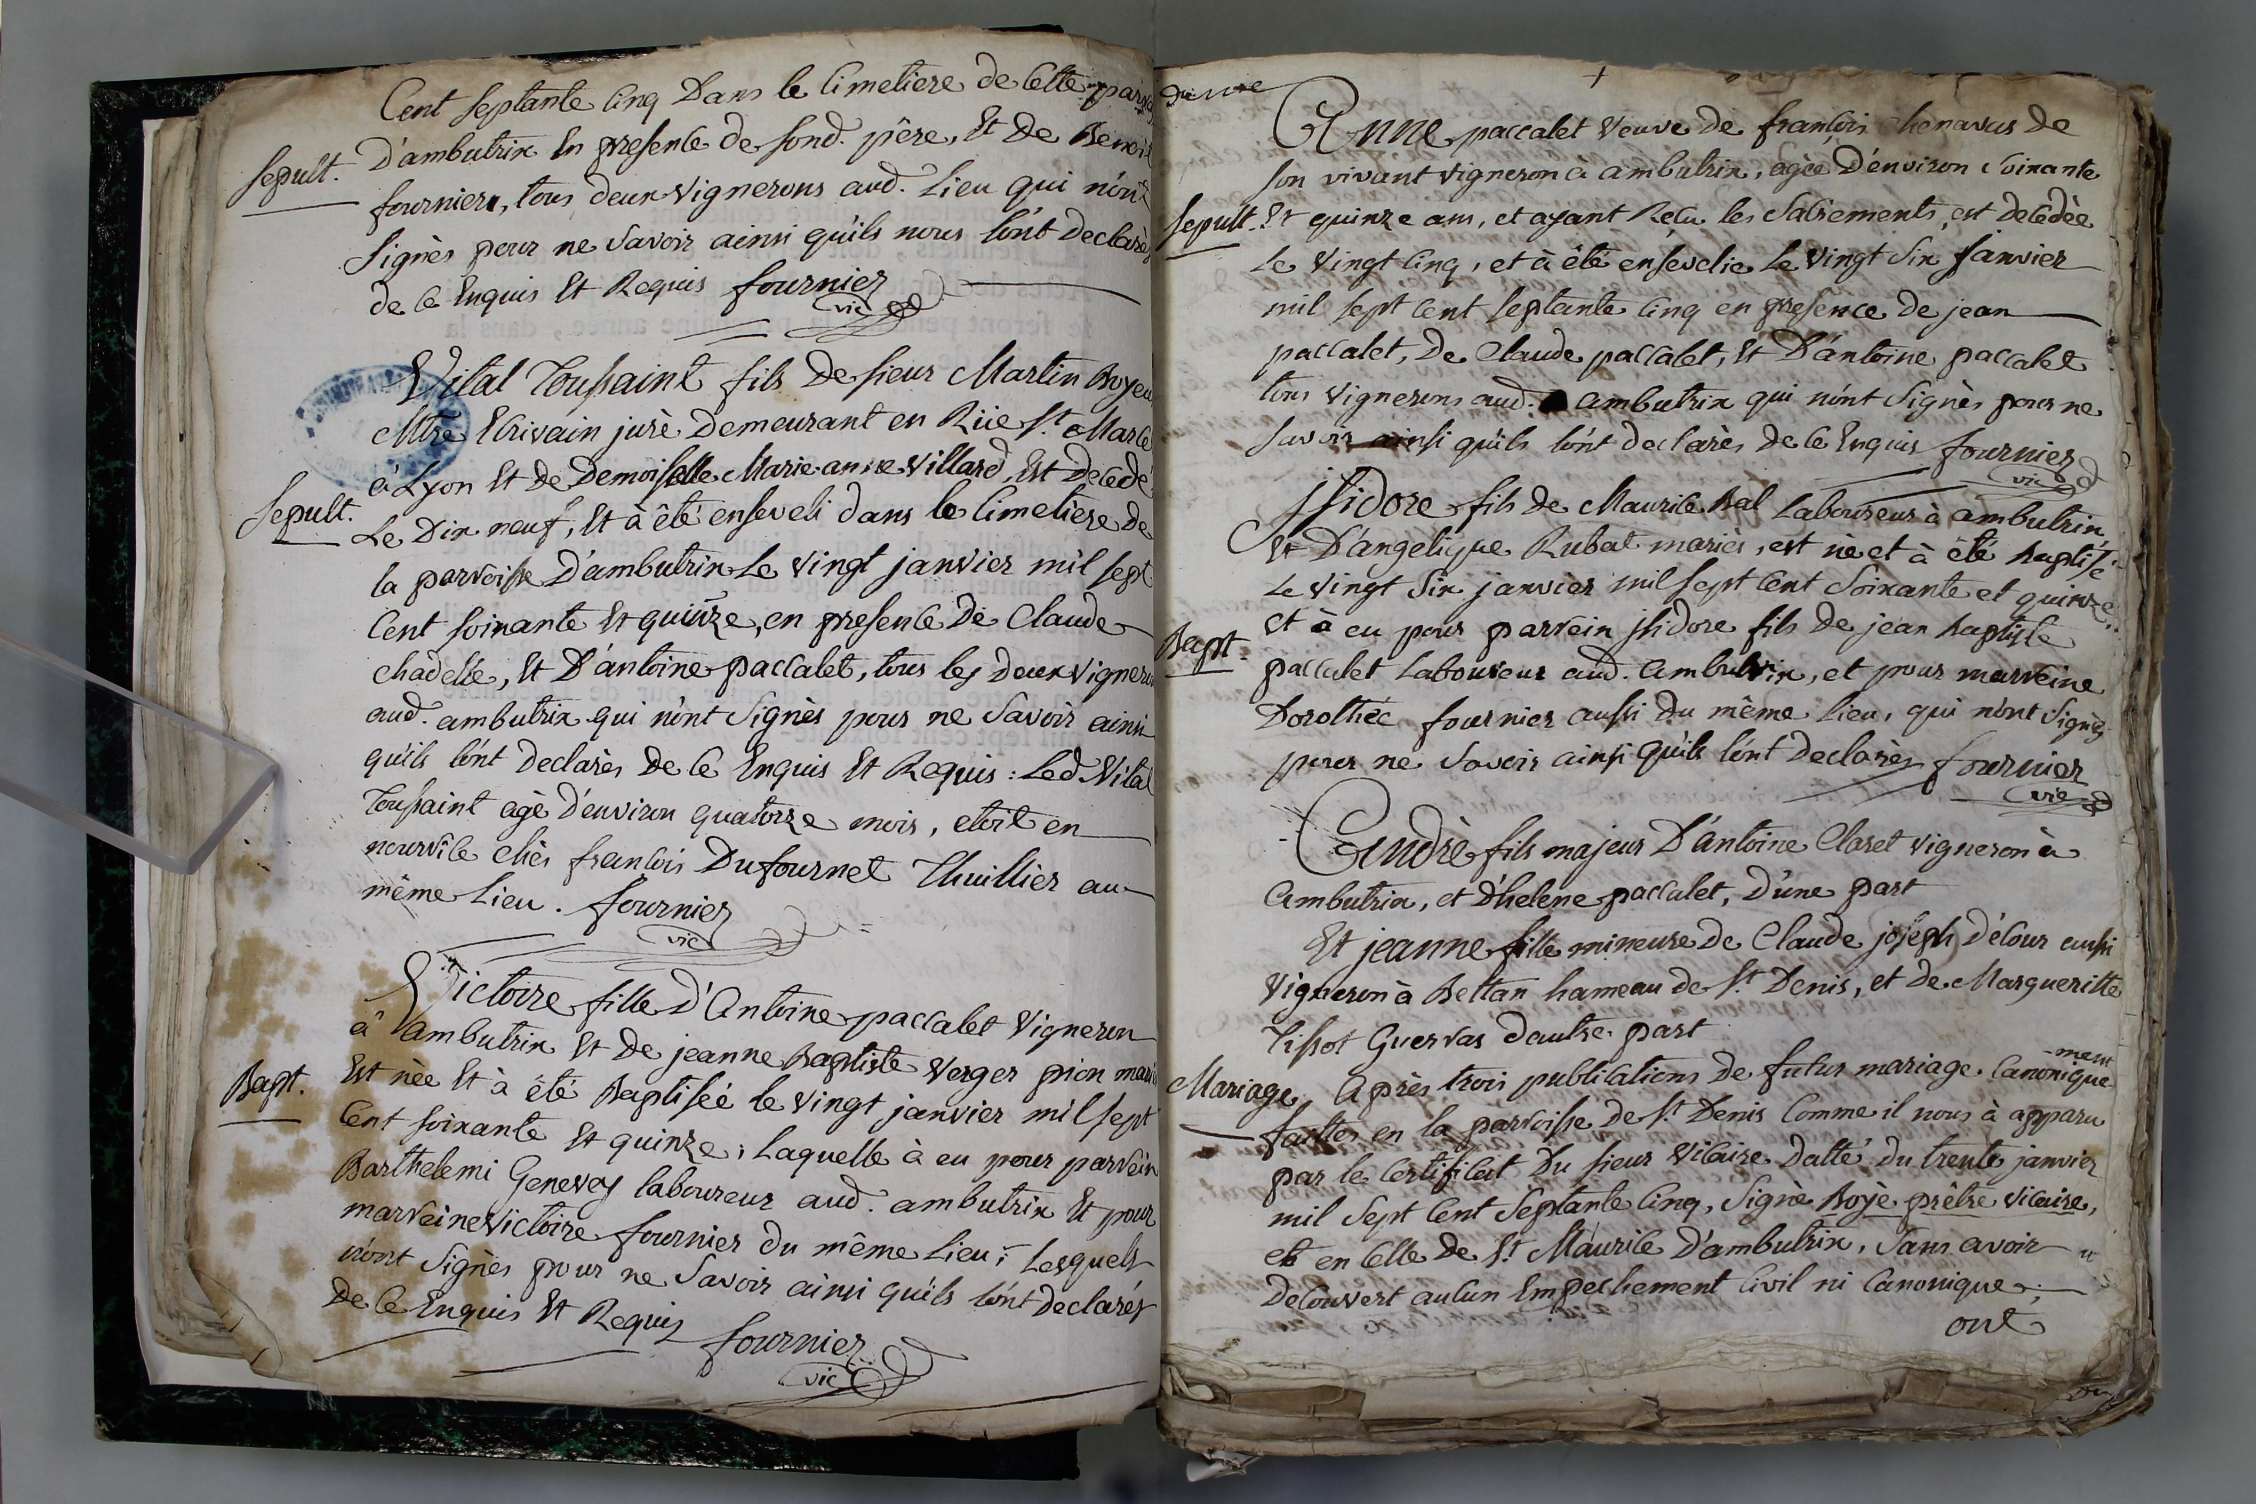 Cent septante cinq Dans le Cimetiere de Cette
sepult. D'ambutrix En presence de sond. père, Et de Benoit
fournier, tous deux vignerons aud. Lieu qui n'ont
signès pour ne savoir ainsi qu'ils nous l'ont declarès
de ce Enquis Et Requis fournier
vic
Vital Toussaint fils de sieur Martin
Mtre Ecrivain jurè Demeurant en Rüe St.
à Lyon Et de Demoiselle Marie anne Villard, Est Decedé
Sepult. Le Dix neuf, Et à êté enseveli dans le Cimetiere de
la parroisse D'ambutrix Le vingt janvier mil sept
Cent soixante Et quinze, en presence De Claude
Et D'antoine paccalet, tous les deux vignerons
aud. ambutrix qui n'ont signès pour ne savoir ainsi
qu'ils l'ont Declarès De ce Enquis Et Requis : Led. Vital
Toussaint agè d'environ quatorze mois, etoit en
nourrîce chès francois Dufournet Thuillier au
même Lieu. fournier
vic
Victoire fille d'Antoine paccalet vigneron
à ambutrix Et de jeanne Baptiste Verger pion
Bapt. Est nèe Et à êté Baptiséè le vingt janvier mil sept
Cent soixante Et quinze, Laquelle à eu pour parrein
Barthelemi Genevay laboureur aud. ambutrix Et pour
marreine Victoire fournier du même Lieu ; Lesquels
n'ont signès pour ne savoir ainsi qu'ils l'ont Declarés
De ce Enquis Et Requis
fournier
vic
Anne paccalet veuve de francois chenavas de
son vivant vigneron à ambutrix, agèe D'environ soixante
sepult. Et quinze ans, et ayant Reçu les sacrements, est decedèe
Le vingt cinq, et à êté ensevelie Le vingt six janvier
mil sept cent septante cinq en presence de jean
paccalet, De Claude paccalet, Et D'antoine paccalet
tous vignerons aud. ambutrix qui n'ont signès pour ne
savoir ainsi qu'ils l'ont declarès de ce Enquis fournier
vic
jsidore fils de Maurice Bal Laboureur à ambutrix,
Et D'angelique Rubat mariès, est nè et à êté baptisé
Le vingt six janvier mil sept cent soixante et quinze
Bapt. Et à eu pour parrein jsidore fils de jean baptiste
paccalet Laboureur aud. ambutrix, et pour marreine
Dorothéè fournier aussi du même Lieu, qui n'ont signès
pour ne savoir ainsi qu'ils l'ont Declarès fournier
vic
Andrè fils majeur D'antoine Claret vigneron à
ambutrix, et d'helene paccalet, D'une part
Et jeanne fille mineure de Claude joseph Délour aussi
Vigneron à Bettan hameau de St. Denis, et de Margueritte
Tissot Guerras dautre part
-ment
Mariage Après trois publications de futur mariage canonique
faittes en la parroisse de St Denis Comme il nous à apparu
par le Certificat Du sieur Vicaire datté du trente janvier
mil sept Cent septante cinq, signè Boyè prêtre vicaire,
et en Celle de St. Maurice D'ambutrix, sans avoir
Decouvert aucun Empechement Civil ni Canonique ;
ont